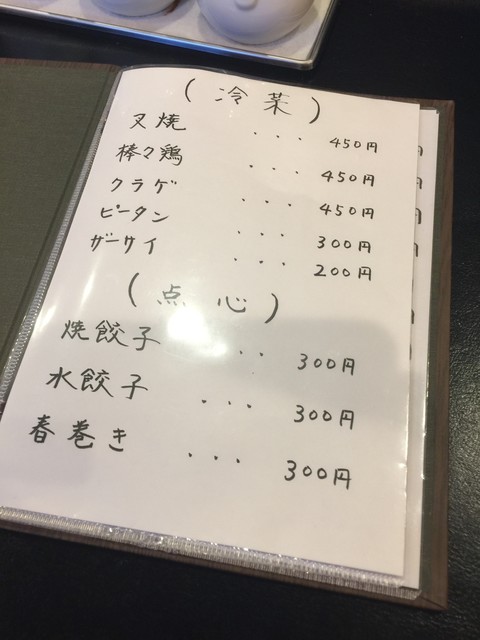 (冷菜)
叉焼 ... 450円
棒々鶏 ... 450円
クラゲ ... 450円
ピータン ... 300円
ザーサイ ... 200円
(点心)
焼餃子 .. 300円
水餃子 ... 300円
春巻き ... 300円